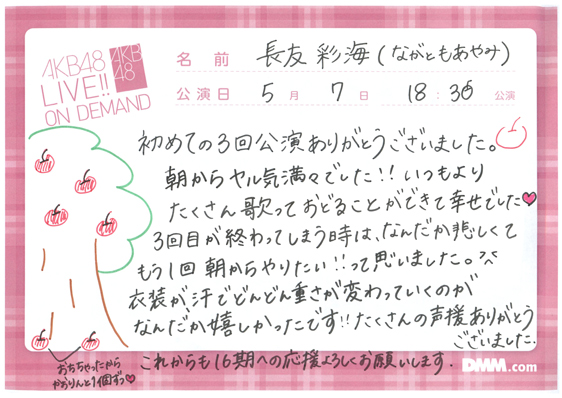 AKB48
LIVE!!
ON DEMAND
AKB
48
名前 長友 彩海 (ながともあやみ)
公演日 5月 7日 18:30 公演
初めての3回公演ありがとうございました。
朝からヤル気満々でした!! いつもより
たくさん歌っておどることができて幸せでした♥
3回目が終わってしまう時は、なんだか悲しくて
もう1回朝からやりたい!!って思いました。^^
衣装が汗でどんどん重さが変わっていくのが
なんだか嬉しかったです!! たくさんの声援ありがとう
ございました。
これからも16期への応援よろしくお願いします.
おちちゃったから
かおりんと1個ずつ♥
DMM.com